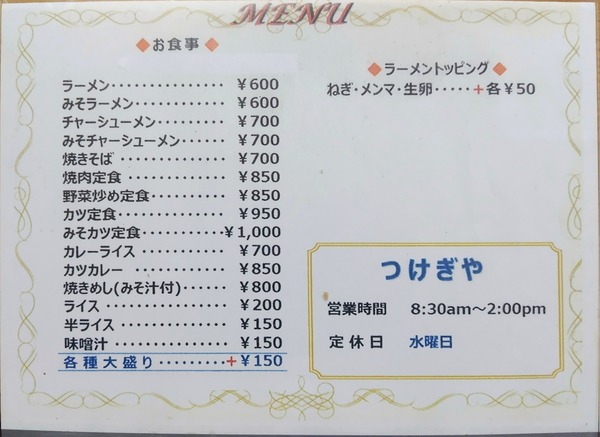 MENU
◆お食事◆
ラーメン・・・・・・・・・・・・・・・ ¥600
みそラーメン・・・・・・・・・・・・ ¥600
チャーシューメン・・・・・・・・・ ¥700
みそチャーシューメン・・・・・・ ¥700
焼きそば ・・・・・・・・・・・・・・ ¥700
焼肉定食 ・・・・・・・・・・・・・ ¥850
野菜炒め定食・・・・・・・・・・ ¥850
カツ定食・・・・・・・・・・・・・・ ¥950
みそカツ定食・・・・・・・・・・・¥1,000
カレーライス・・・・・・・・・・・・ ¥700
カツカレー ・・・・・・・・・・・・ ¥850
焼きめし(みそ汁付)・・・・・・ ¥800
ライス・・・・・・・・・・・・・・・・ ¥200
半ライス・・・・・・・・・・・・・・ ¥150
味噌汁・・・・・・・・・・・・・・・ ¥150
各種大盛り・・・・・・・・・+¥150
◆ラーメントッピング◆
ねぎ・メンマ・生卵・・・・・+各¥50
つけぎや
営業時間 8:30am～2:00pm
定休日 水曜日